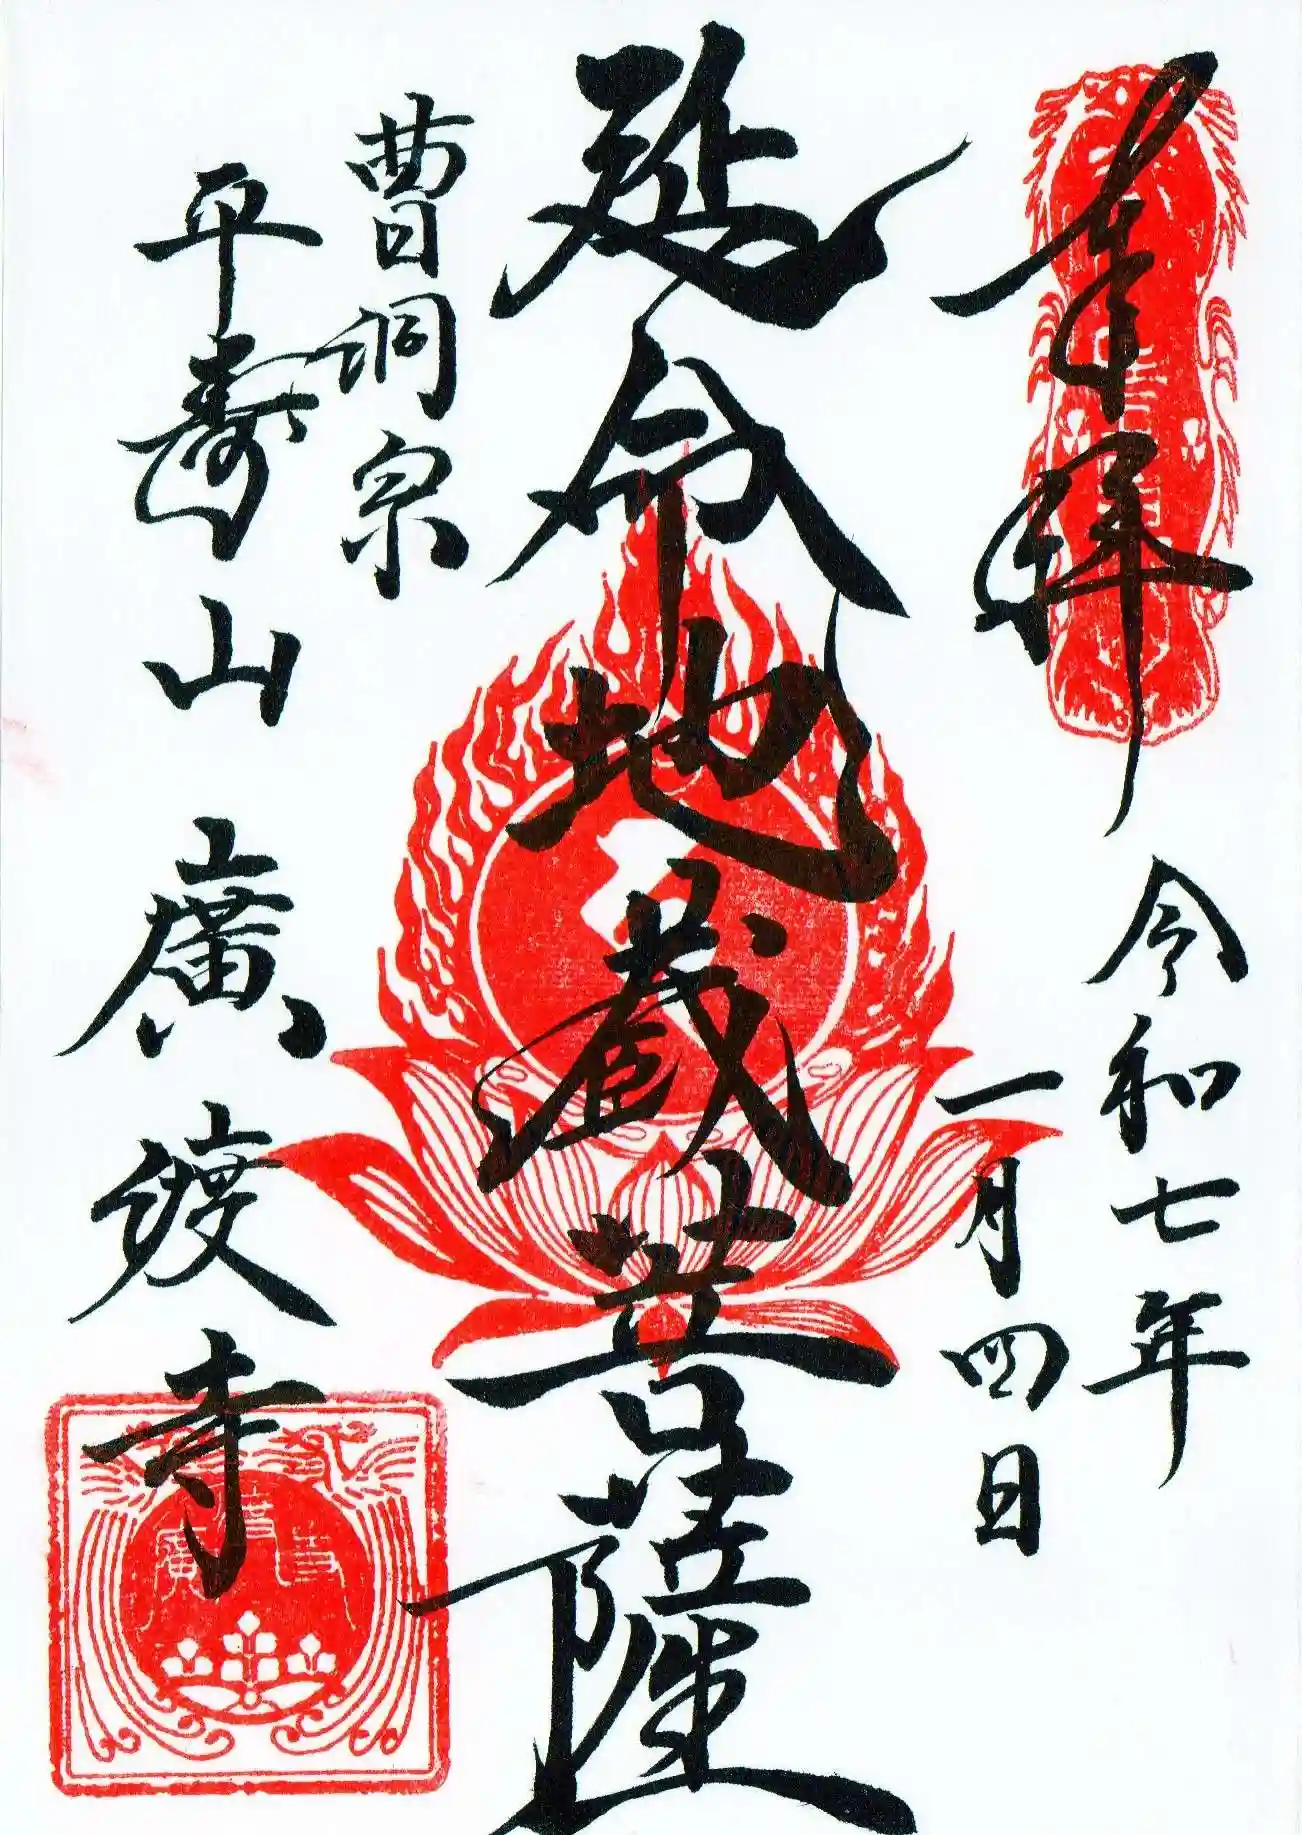 奉拝
令和七年
一月四日
延命地蔵菩薩
曹洞宗
平壽山 廣渡寺